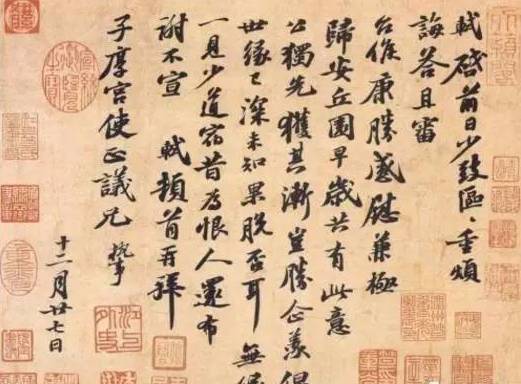 軾啓前日少致區〻重煩
誨荅且審
台候康勝感慰兼極
歸安丘園早歲共有此意
公獨先獲其漸豈勝企羨
世緣已深未知果脫否耳 無
一見少道宿昔為恨人還布
謝不宣 軾頓首再拜
子厚宮使正議兄 執事
十二月廿七日
江上外史